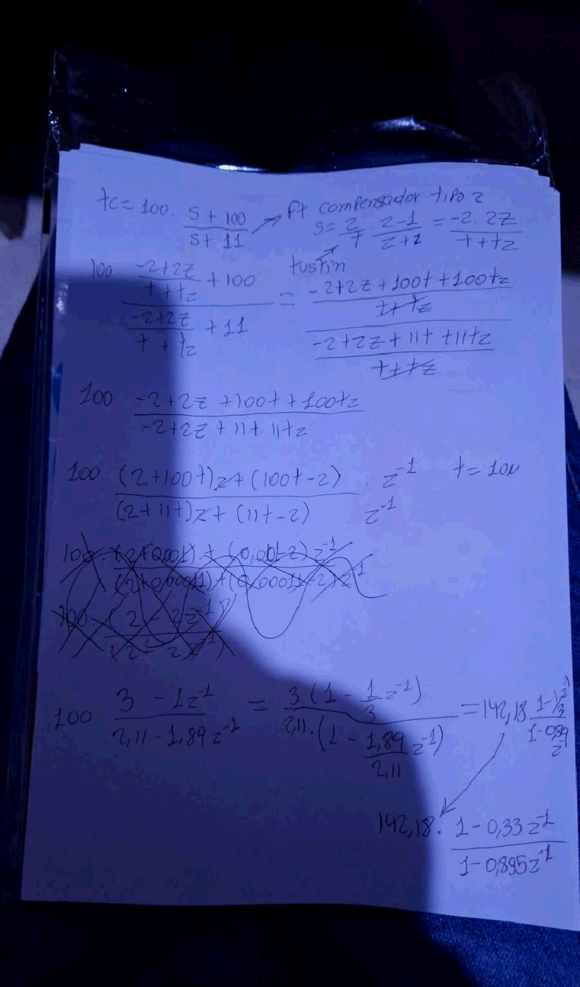 tc = 100 · (s + 100)/(s + 11) → ft compensador tipo 2
s = 2/t · (z - 1)/(z + z) = (-2 . 2z)/(t + tz)
tustin
100 ((-2 + 2z)/(t + tz) + 100)/((-2 + 2z)/(t + tz) + 11) = ((-2 + 2z + 100t + 100tz)/(t + tz))/((-2 + 2z + 11t + 11tz)/(t + tz))
100 (-2 + 2z + 100t + 100tz)/(-2 + 2z + 11t + 11tz)
100 · ((2 + 100t)z + (100t - 2))/((2 + 11t)z + (11t - 2)) · z^-1/z^-1 t = 10
100 (3 - 1z^-1)/(2,11 - 1,89z^-1) = (3(1 - 1/3 z^-1))/(2,11 · (1 - 1,89/2,11 z^-1)) = 142,18
142,18 · (1 - 0,33z^-1)/(1 - 0,895z^-1)